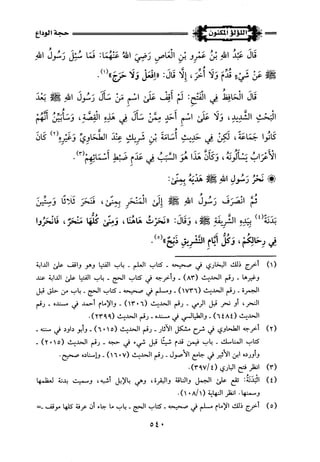 حجة الوداع
اللؤلؤ المكنون
قال عبد الله بن عمرو بن العاص رضي الله عنهما: فما سئل رسول الله
ﷺ عن شيء قدم ولا أخر، إلا قال: «افعل ولا حرج»(١).
قال الحافظ في الفتح: لم أقف على اسم من سأل رسول الله ﷺ بعد
البحث الشديد، ولا على اسم أحد ممن سأل في هذه القصة، وسأبين أنهم
كانوا جماعة، لكن في حديث أسامة بن شريك عند الطحاوي وغيره(٢) كان
الأعراب يسألونه، وكأن هذا هو السبب في عدم ضبط أسمائهم(٣).
نحر رسول الله ﷺ هديه بمنى:
ثم انصرف رسول الله ﷺ إلى المنحر بمنى، فنحر ثلاثا وستين
بدنة(٤) بيده الشريفة ﷺ، وقال: «نحرت هاهنا، ومنى كلها منحر، فانحروا
في رحالكم، وكل أيام التشريق ذبح»(٥).
(١) أخرج ذلك البخاري في صحيحه ـ كتاب العلم ـ باب الفتيا وهو واقف على الدابة
وغيرها ـ رقم الحديث (٨٣) ـ وأخرجه في كتاب الحج ـ باب الفتيا على الدابة عند
الجمرة ـ رقم الحديث (١٧٣٦) ـ ومسلم في صحيحه ـ كتاب الحج ـ باب من حلق قبل
النحر، أو نحر قبل الرمي ـ رقم الحديث (١٣٠٦) ـ والإمام أحمد في مسنده ـ رقم
الحديث (٦٤٨٤) ـ والطيالسي في مسنده ـ رقم الحديث (٢٣٩٩).
(٢) أخرجه الطحاوي في شرح مشكل الآثار ـ رقم الحديث (٦٠١٥) ـ وأبو داود في سننه ـ
كتاب المناسك ـ باب فيمن قدم شيئا قبل شيء في حجه ـ رقم الحديث (٢٠١٥) ـ
وأورده ابن الأثير في جامع الأصول ـ رقم الحديث (١٦٠٧) ـ وإسناده صحيح.
(٣) انظر فتح الباري (٣٩٧/٤).
(٤) البدنة: تقع على الجمل والناقة والبقرة، وهي بالإبل أشبه، وسميت بدنة لعظمها
وسمنها. انظر النهاية (١٠٨/١).
(٥) أخرج ذلك الإمام مسلم في صحيحه ـ كتاب الحج ـ باب ما جاء أن عرفة كلها موقف =
٥٤٠